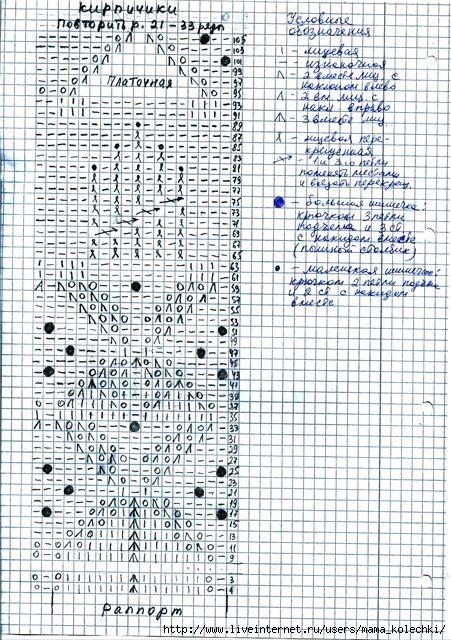 кирпичики
повторить р. 21 - 33 ряды
Платочная
105
103
101
99
97
95
93
91
89
87
85
83
81
79
77
75
73
71
69
67
65
63
61
59
57
55
53
51
49
47
45
43
41
39
37
35
33
31
29
27
25
23
21
19
17
15
13
11
9
3
Раппорт
Условные
обозначения
- лицевая
- изнаночная
- 2 вместе лиц. с
наклоном влево
- 2 вм. лиц. с
накл вправо
- 3 вместе лиц
- лицевая пере-
крещенная
- 1 и 3-ю петли
поменять местами
и вязать перекрещ.
- большая шишечка:
крючком 3 петли
подъема и 3 ст
с накидом вместе
(пышный столбик)
- маленькая шишечка:
крючком 2 петли подъема
и 2 ст с накидом
вместе
http://www.liveinternet.ru/users/mama_kolechki/